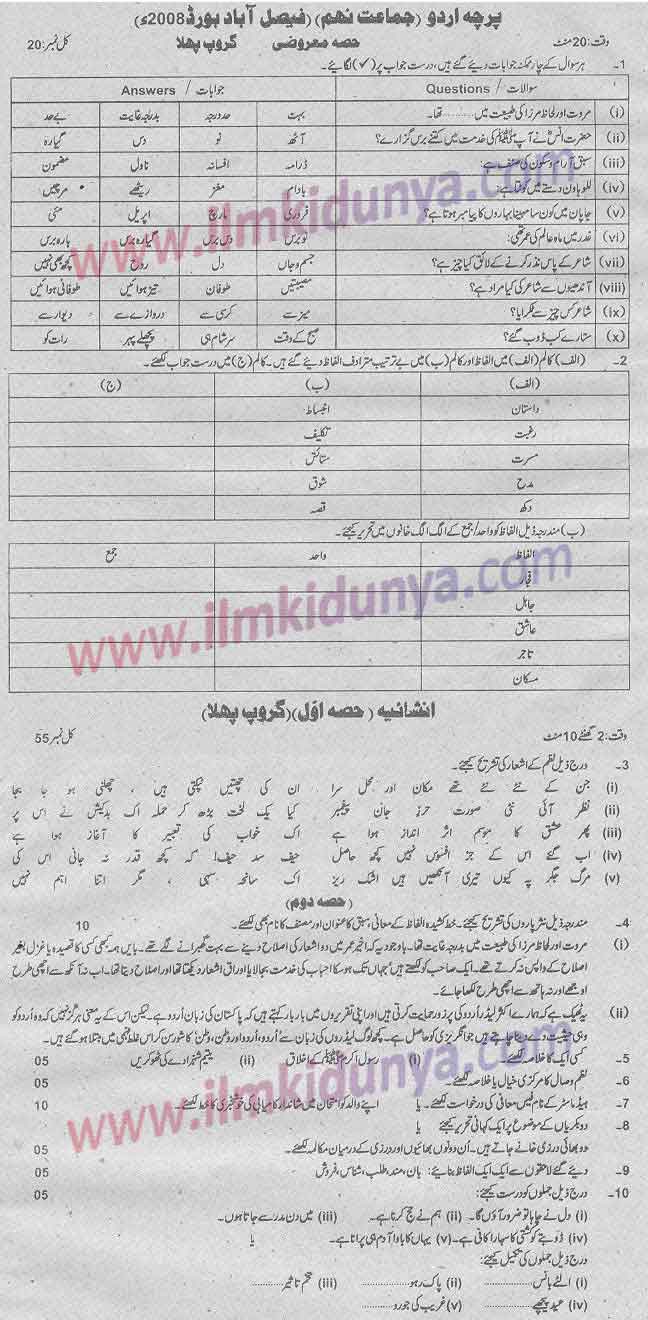 پرچہ اردو (جماعت نہم) (فیصل آباد بورڈ 2008ء)
وقت: 20 منٹ حصہ معروضی گروپ پہلا کل نمبر: 20
1۔ ہر سوال کے چار ممکنہ جوابات دیے گئے ہیں، درست جواب پر (✓) لگائیے۔
سوالات / Questions جوابات / Answers
(i) مروت اور لحاظ مرزا کی طبیعت میں ......... تھا۔ بہت حد درجہ بدرجہ غایت بے حد
(ii) حضرت انسؓ نے آپ ﷺ کی خدمت میں کتنے برس گزارے؟ آٹھ نو دس گیارہ
(iii) سبق آرام و سکون کی صنف ہے: ڈرامہ افسانہ ناول مضمون
(iv) للو ہاون دستے میں کوٹتا ہے: بادام مغز ریٹھے مرچیں
(v) جاپان میں کون سا مہینا بہاروں کا پیامبر ہوتا ہے؟ فروری مارچ اپریل مئی
(vi) غدر میں ماہ عالم کی عمر تھی: نو برس دس برس گیارہ برس بارہ برس
(vii) شاعر کے پاس نذر کرنے کے لائق کیا چیز ہے؟ جسم و جاں دل روح کچھ بھی نہیں
(viii) آندھیوں سے شاعر کی کیا مراد ہے؟ مصیبتیں طوفان تیز ہوائیں طوفانی ہوائیں
(ix) شاعر کس چیز سے ٹکرایا؟ میز سے کرسی سے دروازے سے دیوار سے
(x) ستارے کب ڈوب گئے؟ صبح کے وقت سرشام ہی پچھلے پہر رات کو
2۔ (الف) کالم (الف) میں الفاظ اور کالم (ب) میں بے ترتیب مترادف الفاظ دیے گئے ہیں۔ کالم (ج) میں درست جواب لکھئے۔
(الف) (ب) (ج)
داستان انبساط
رغبت تکلیف
مسرت ستائش
مدح شوق
دکھ قصہ
(ب) مندرجہ ذیل الفاظ کو واحد/جمع کے الگ الگ خانوں میں تحریر کیجئے۔
الفاظ واحد جمع
فجار
جاہل
عاشق
تاجر
مسکان
www.ilmkidunya.com
انشائیہ (حصہ اوّل) (گروپ پہلا)
وقت: 2 گھنٹے 10 منٹ کل نمبر 55
3۔ درج ذیل نظم کے اشعار کی تشریح کیجئے۔
(i) جن کے نئے نئے تھے مکان اور محل سرا ان کی چھتیں ٹپکتی ہیں، چھلنی ہو جا بجا
(ii) نظر آئی نئی صورت حرز جان پیغمبر کیا یک لخت بڑھ کر حملہ اک بدکیش نے اس پر
(iii) پھر عشق کا موسم اثر انداز ہوا ہے اک خواب کی تعبیر کا آغاز ہوا ہے
(iv) اب گئے اس کے جز افسوس نہیں کچھ حاصل حیف صد حیف! کہ کچھ قدر نہ جانی اس کی
(v) مرگ جگر پہ کیوں تیری آنکھیں ہیں اشک ریز اک سانحہ سہی، مگر اتنا اہم نہیں
(حصہ دوم)
4۔ مندرجہ ذیل نثر پاروں کی تشریح کیجئے۔ خط کشیدہ الفاظ کے معانی، سبق کا عنوان اور مصنف کا نام بھی لکھئے۔ 10
(i) مروت اور لحاظ مرزا کی طبیعت میں بدرجہ غایت تھا۔ باوجود یہ کہ اخیر عمر میں وہ اشعار کی اصلاح دینے سے بہت گھبرانے لگے تھے۔ بایں ہمہ کبھی کسی کا قصیدہ یا غزل بغیر
اصلاح کے واپس نہ کرتے تھے۔ ایک صاحب کو لکھتے ہیں جہاں تک ہو سکا احباب کی خدمت بجا لایا اوراق اشعار دیکھتا تھا اور اصلاح دیتا تھا۔ اب نہ آنکھ سے اچھی طرح
سوجھے اور نہ ہاتھ سے اچھی طرح لکھا جائے۔
(ii) یہ ٹھیک ہے کہ ہمارے اکثر لیڈر اُردو کی پرزور حمایت کرتی ہیں اور اپنی تقریروں میں بار بار کہتے ہیں کہ پاکستان کی زبان اُردو ہے۔ لیکن اس کے یہ معنی ہرگز نہیں کہ وہ اردو کو
وہی حیثیت دے دینا چاہتے ہیں جو انگریزی کو حاصل ہے۔ کچھ لوگ لیڈروں کی زبان سے اُردو، اُردو اور وطن، وطن کا شور سن کر اس غلط فہمی میں مبتلا ہو گئے ہیں۔
5۔ کسی ایک کا خلاصہ لکھئے۔ (i) رسول اکرم ﷺ کے اخلاق (ii) یتیم شہزادے کی ٹھوکریں 05
6۔ نظم وصال کا مرکزی خیال یا خلاصہ لکھئے۔ 05
7۔ ہیڈ ماسٹر کے نام فیس معافی کی درخواست لکھئے۔ یا اپنے والد کو امتحان میں شاندار کامیابی کی خوشخبری کا خط لکھئے۔ 10
8۔ دو بکریاں کے موضوع پر ایک کہانی تحریر کیجئے یا
دو بھائی درزی خانے جاتے ہیں۔ اُن دونوں بھائیوں اور درزی کے درمیان مکالمہ لکھئے۔ 05
9۔ دیے گئے لاحقوں سے ایک ایک الفاظ بنائیے: بان، مند، طلب، شناس، فروش 05
10۔ درج ذیل جملوں کو درست کیجئے: 05
(i) دل نے چاہا تو ضرور آؤں گا۔ (ii) ہم نے حج کرنا ہے۔ (iii) میں دن مدرسے جاتا ہوں۔
(iv) ڈوبتے کو کشتی کا سہارا کافی ہے۔ (v) یہاں کا باوا آدم ہی پرانا ہے۔ یا
درج ذیل جملوں کی تکمیل کیجئے:
(i) الٹے بانس ......... (ii) پاک رہو ......... (iii) تخم تاثیر .........
(iv) عید پیچھے ......... (v) غریب کی جورو .........